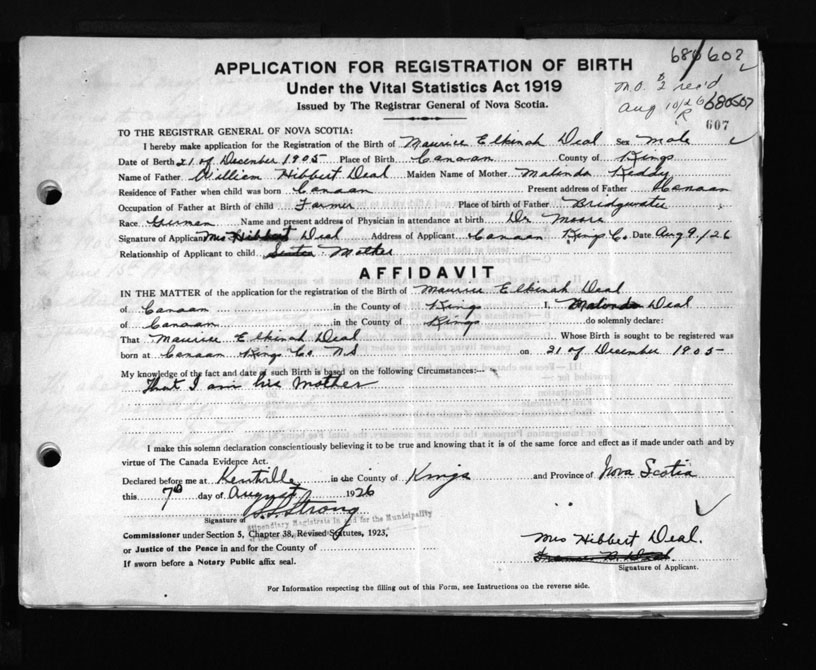 680602
APPLICATION FOR REGISTRATION OF BIRTH
Under the Vital Statistics Act 1919
Issued by The Registrar General of Nova Scotia.
M.O. $2 rec'd
Aug 10/26 680507
R
607
TO THE REGISTRAR GENERAL OF NOVA SCOTIA:
I hereby make application for the Registration of the Birth of Maurice Elkinah Deal Sex Male
Date of Birth 21 of December 1905 Place of Birth Canaan County of Kings
Name of Father William Hibbert Deal Maiden Name of Mother Malinda Kiddy
Residence of Father when child was born Canaan Present address of Father Canaan
Occupation of Father at Birth of child Farmer Place of birth of Father Bridgwater
Race German Name and present address of Physician in attendance at birth Dr Moore
Signature of Applicant Mrs Hibbert Deal Address of Applicant Canaan Kings C. Date Aug 9/26
Relationship of Applicant to child Sister Mother
AFFIDAVIT
IN THE MATTER of the application for the registration of the Birth of Maurice Elkinah Deal
of Canaan in the County of Kings I, Malinda Deal
of Canaan in the County of Kings do solemnly declare:
That Maurice Elkinah Deal Whose Birth is sought to be registered was
born at Canaan Kings Co NS on 21 of December 1905
My knowledge of the fact and date of such Birth is based on the following Circumstances:—
That I am his Mother
I make this solemn declaration conscientiously believing it to be true and knowing that it is of the same force and effect as if made under oath and by
virtue of The Canada Evidence Act.
Declared before me at Kentville in the County of Kings and Province of Nova Scotia
this 7th day of August 1926
Signature of S.S. Strong
Stipendiary Magistrate in and for the Municipality
Commissioner under Section 5, Chapter 38, Revised Statutes, 1923,
or Justice of the Peace in and for the County of
If sworn before a Notary Public affix seal.
Mrs Hibbert Deal.
Signature of Applicant.
For Information respecting the filling out of this Form, see Instructions on the reverse side.